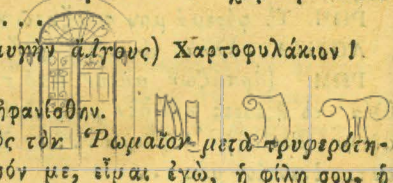 ....
αυγὴν ἄλγους) Χαρτοφυλάκιον!
ηφανίσθην.
ὸς τὸν Ῥωμαῖον μετὰ τρυφερότη-
με, εἶμαι ἐγώ, ἡ φίλη σου, ἡ